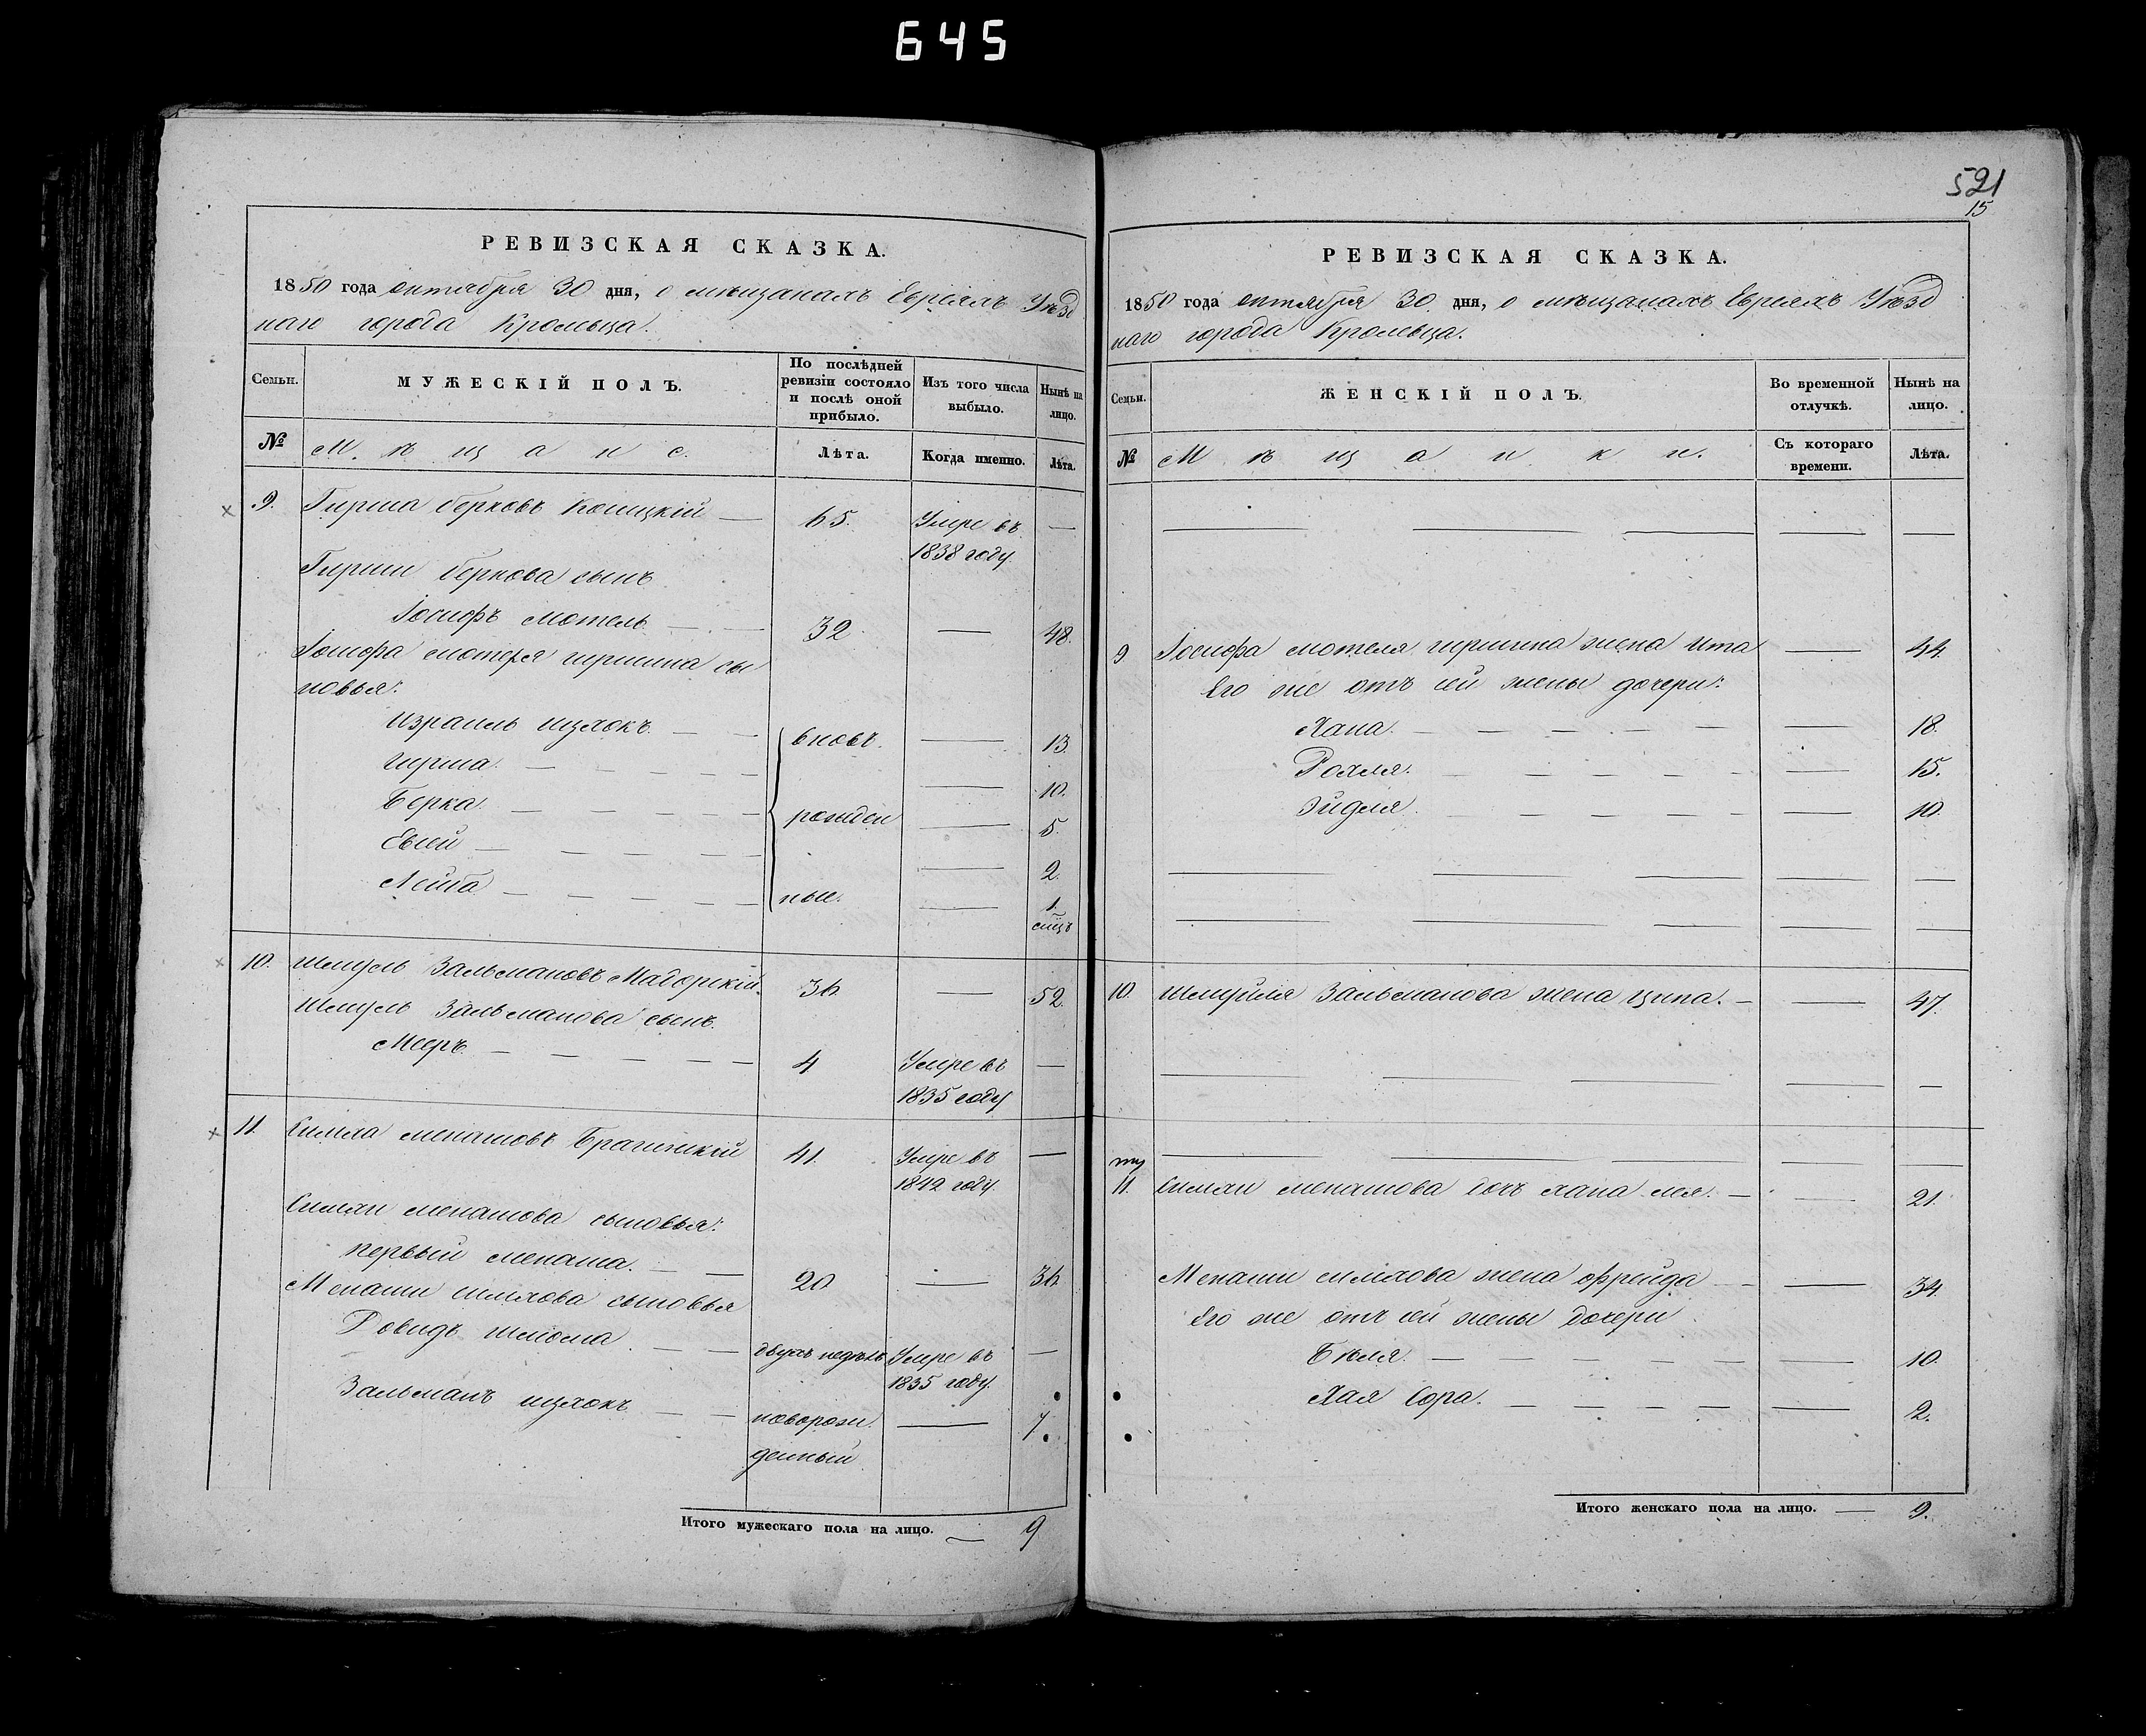 645
РЕВИЗСКАЯ СКАЗКА.
1850 года октября 30 дня, о мѣщанахъ Евреяхъ Уѣзд
наго города Кролевца.
Семьи.
МУЖЕСКІЙ ПОЛЪ.
По послѣдней
ревизіи состояло
и послѣ оной
прибыло.
Изъ того числа
выбыло.
Нынѣ на
лицо.
№
Мѣщане.
Лѣта.
Когда именно.
Лѣта.
9. Гирша Берковъ 65. Умре въ —
1838 году.
Гирши Беркова сынъ
Іосифъ Мотель — 32 — 48.
Іосифа Мотеля Гиршина сы
новья:
Израиль Ицхокъ — вновь — 13.
Гирша — 10.
Берка — рожден — 5.
Евсей — 2.
Лейба — ные. — 1.
мѣцъ
10. Шмуль Зальмановъ Мадорскій 36 — 52.
Шмуль Зальманова сынъ
Мееръ — 4 Умре въ —
1835 году
11. Симха Менашовъ Брагинскій 41. Умре въ —
1842 году.
Симхи Менашова сыновья:
первый Менаша. — 20 — 36
Менаши Симхова сыновья
Шлиома — двухъ недѣль Умре въ —
1835 году.
Зальманъ Ицхокъ — новорож — 7.
денный
Итого мужескаго пола на лицо. — 9
521
15
РЕВИЗСКАЯ СКАЗКА.
1850 года октября 30 дня, о мѣщанахъ Евреяхъ Уѣзд
наго города Кролевца.
Семьи.
ЖЕНСКІЙ ПОЛЪ.
Во временной
отлучкѣ.
Нынѣ на
лицо.
№
Мѣщанки.
Съ котораго
времени.
Лѣта.
9 Іосифа Мотеля Гиршина жена Ита — 44.
Его же отъ сей жены дочери:
Хана. — 18.
Рохля. — 15.
Эйдля. — 10.
10. Шмуйля Зальманова жена Ципа. — 47.
11. Симхи Менашова дочь Хана Лея. — 21.
Менаши Симхова жена Фрейда — 34.
Его же отъ сей жены дочери
Бѣля. — 10.
Хая Сора. — 2.
Итого женскаго пола на лицо. — 9.